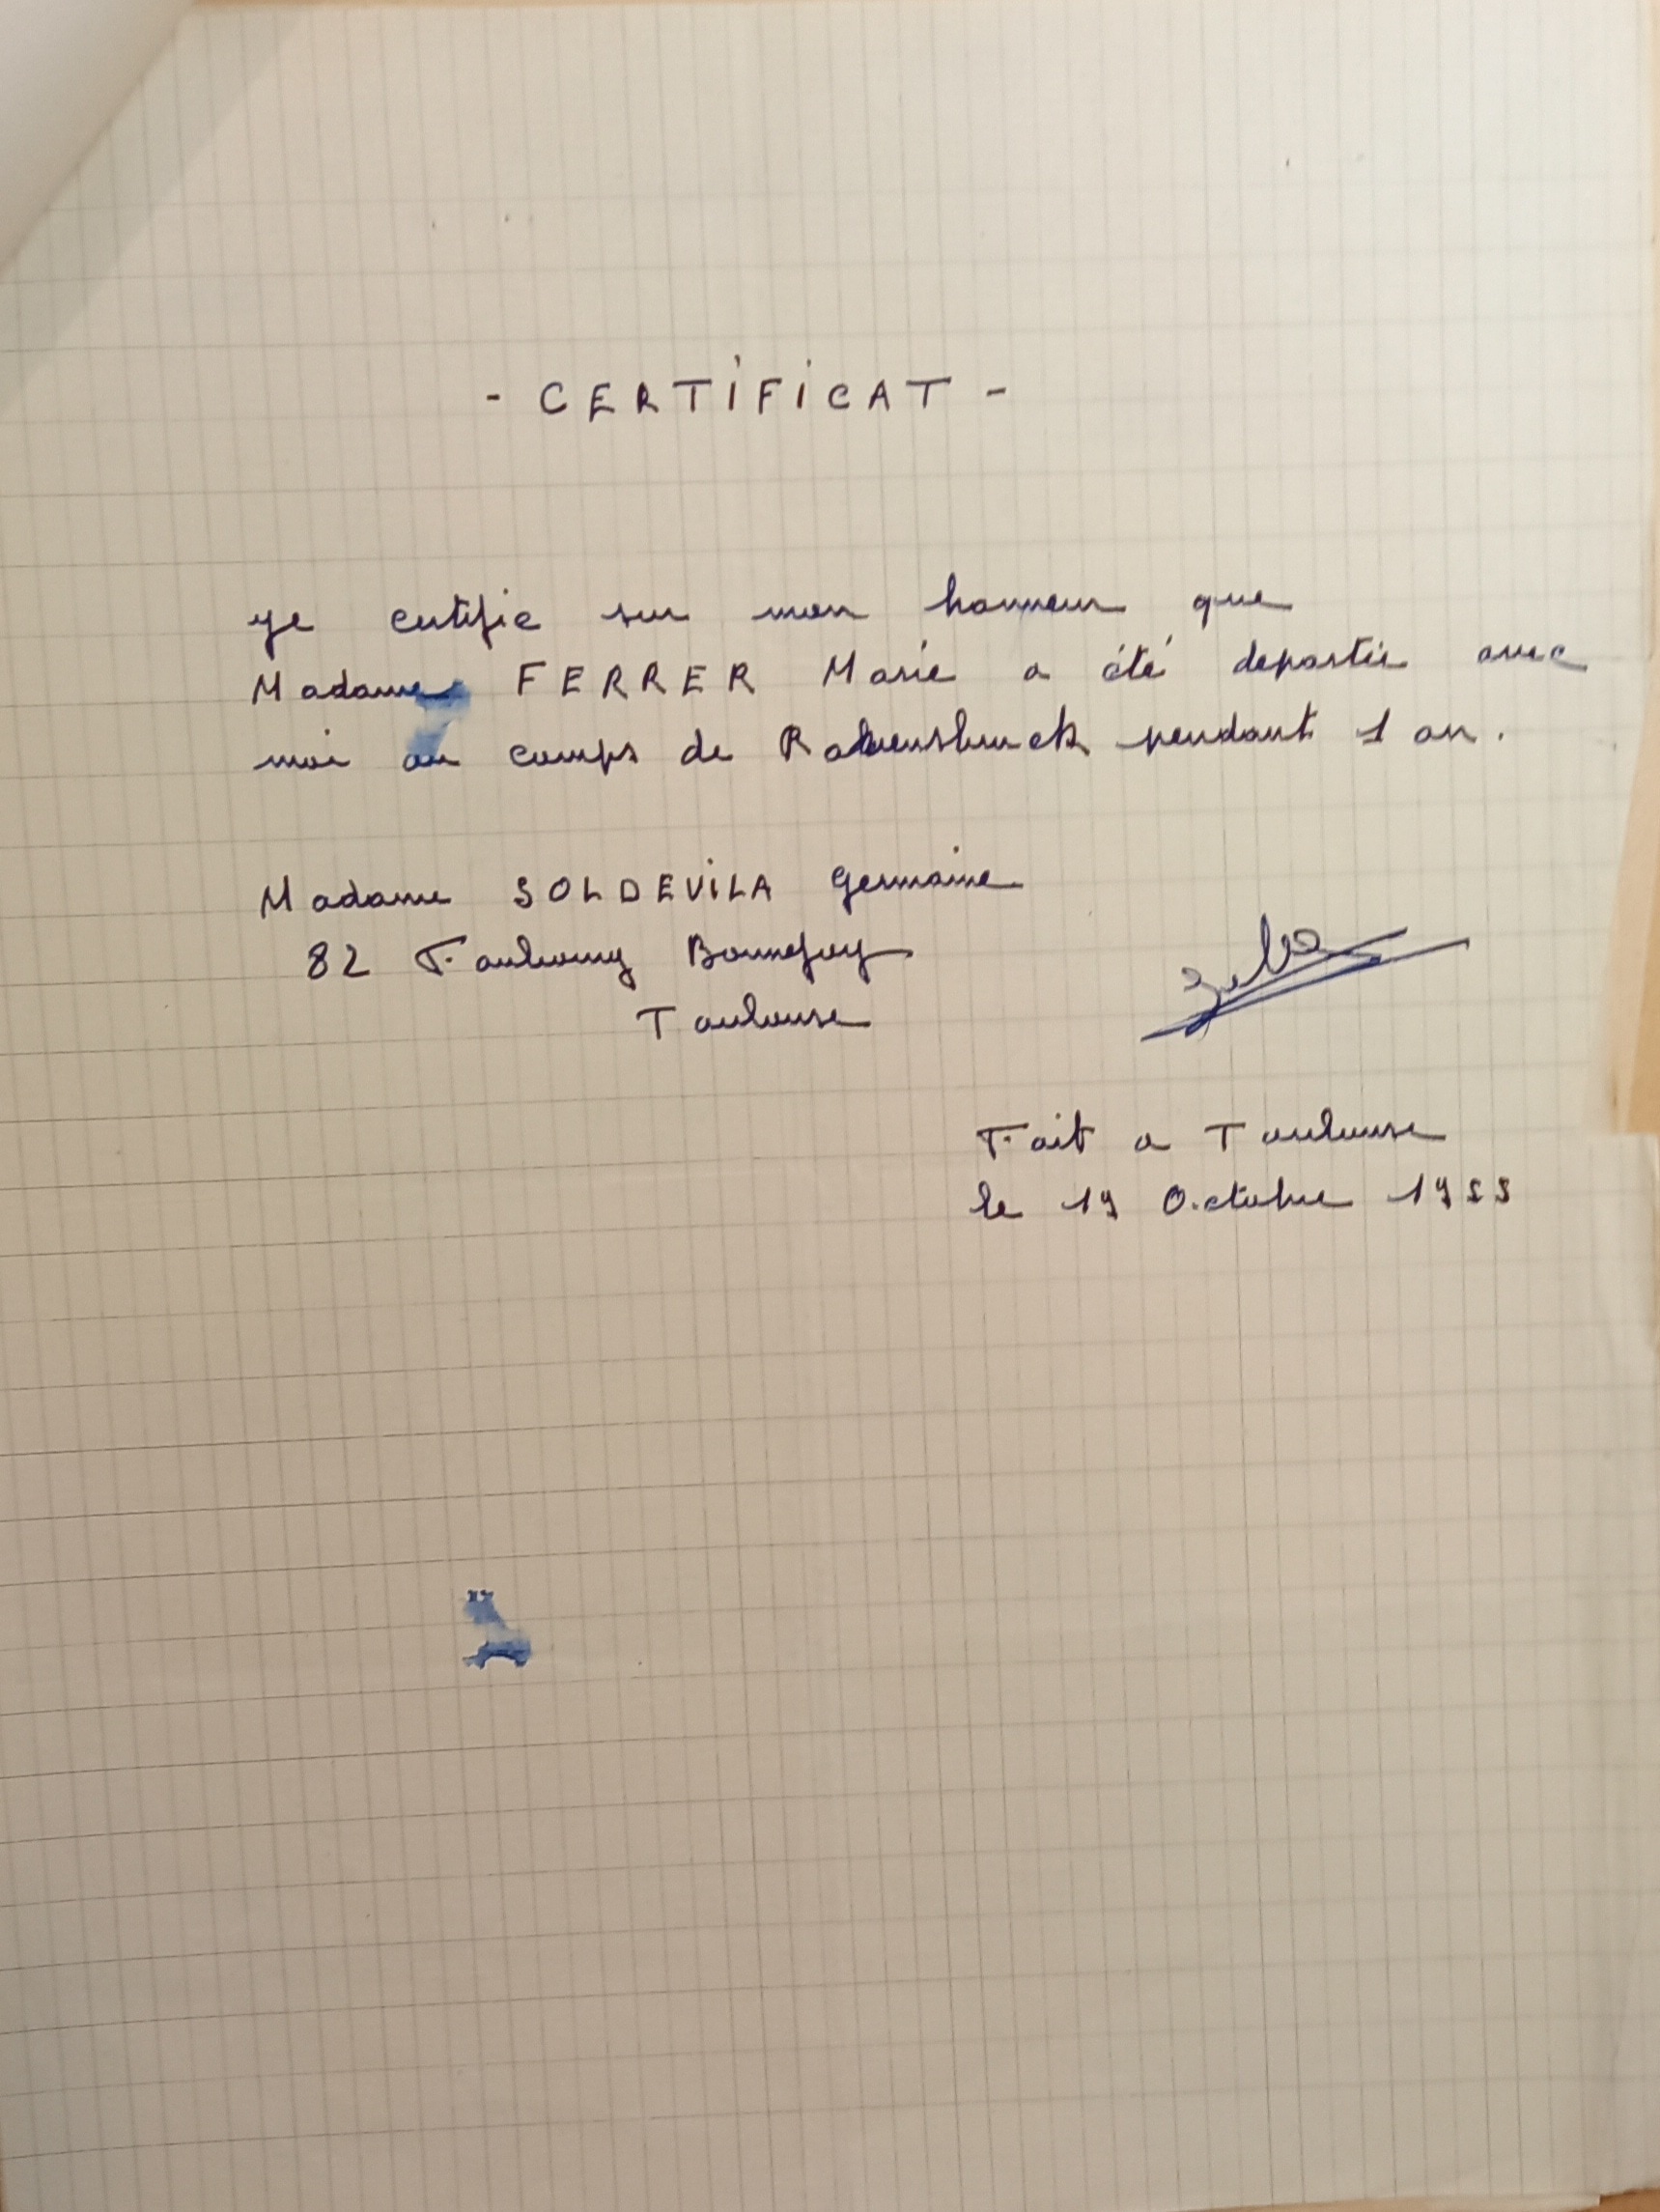 - CERTiFiCAT -
Je certifie sur mon honneur que
Madame FERRER Marie a été deportée avec
moi au camps de Ravensbruck pendant 1 an.
Madame SOLDEViLA Germaine
82 Faubourg Bonnefoy
Toulouse
Fait a Toulouse
le 19 Octobre 1955